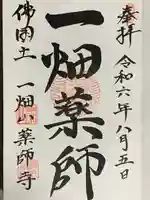 奉拝
令和六年八月五日
一畑薬師
佛國土
一畑山薬師寺